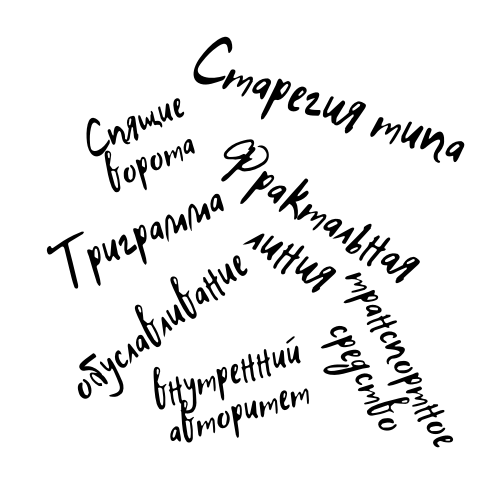 Старегия типа
Спящие
ворота
Фрактальная
линия
Триграмма
транспортное
средство
обуславливание
внутренний
авторитет